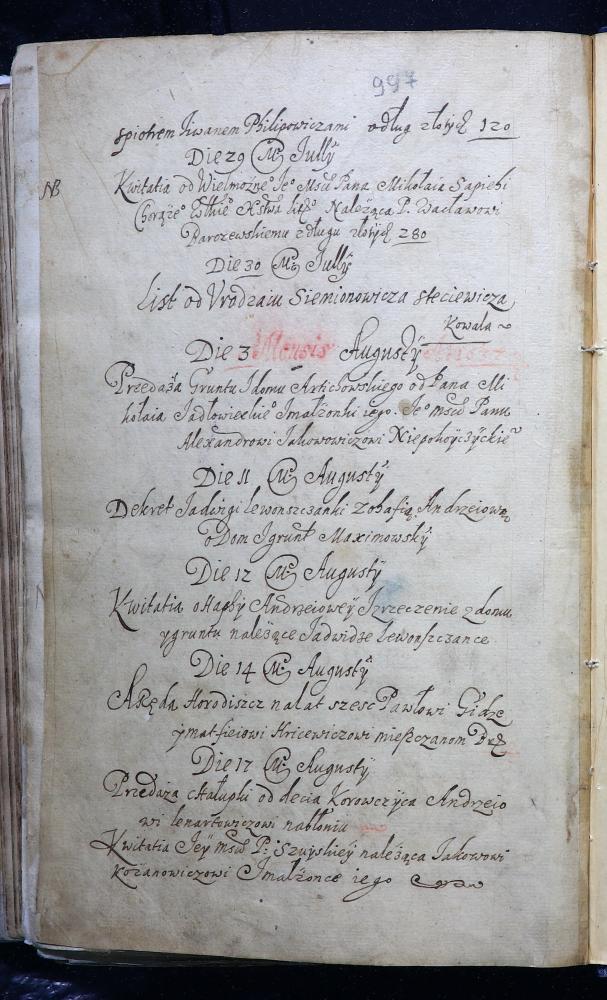 997
spiotrem Iwanem Philipowiczami odług złotych 120
Die 29 Ms Jully
NB
Kwitatia od Wielmożne° Ie° Mści Pana Mikołaia Sapiehi
Chorąże° Należąca P. Wacławowi
Barczewskiemu z długu złotych 280
Die 30 Ms Jully
List od Vrodzaiu Siemionowicza steciewicza
Kowala
Die 3 Mensis Augusty
Przedaża Gruntu Idomu Artichowskiego od Pana Mi
kołaia Jadłowieckie° Imałżonki iego. Ie° mści Panu
Alexandrowi Jakowowiczowi
Die 11 Ms Augusty
Dekret Jadwigi lewonszczanki zohafią Andrzeiową
o Dom Igrunt Maximowsky
Die 12 Ms Augusty
Kwitatia oHaphy Andrzeiowey Izrzeczenie z domu
ygruntu należące Iadwidze Lewonszczance
Die 14 Ms Augusty
Aręda Horodiszcz na lat szesc Pawłowi Gidze
ymatfieiowi Hricewiczowi mieszczanom Brz
Die 17 Ms Augusty
Przedaża chałupki od decia Korowczyca Andrzeio
wi lenartowiczowi nabłoniu
Kwitatia Iey mści P: Szuyskiey należąca Jakowowi
Kozanowiczowi Imałżonce iego